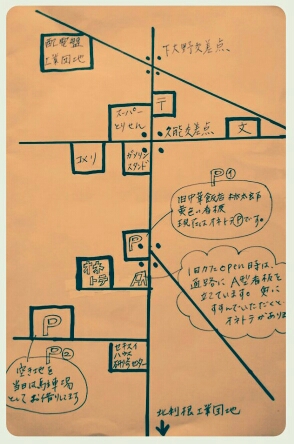 配電盤
工業団地
下大野交差点
スーパー
とりせん
〒
久能交差点
文
コメリ
ガソリン
スタンド
P①
旧中華飯店 桃太郎
黄色い看板
現在はオネトテⓅです。
P
オネ
トテ
A
1日だたopen時は
通路にA型看板を
立てています。更に
すすんでいただくと
オネトテがあります
P
P②
空き地を
当日は駐車場
としてお借りします
セキスイ
ハウス
研修センター
北利根工業団地